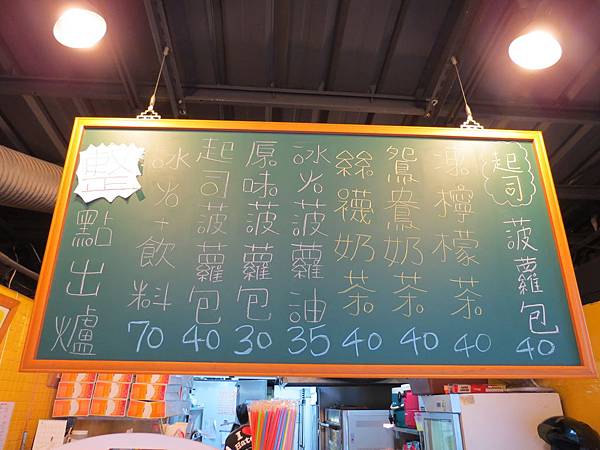 起司菠蘿包 40
凍檸檬茶 40
鴛鴦奶茶 40
絲襪奶茶 40
冰火菠蘿油 35
原味菠蘿包 30
起司菠蘿包 40
冰火+飲料 70
整點出爐